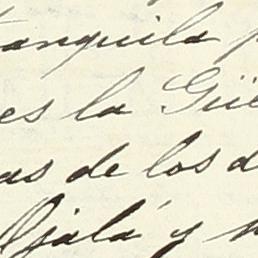 tranquila p
es la Güe
as de los d
Ojalá y n